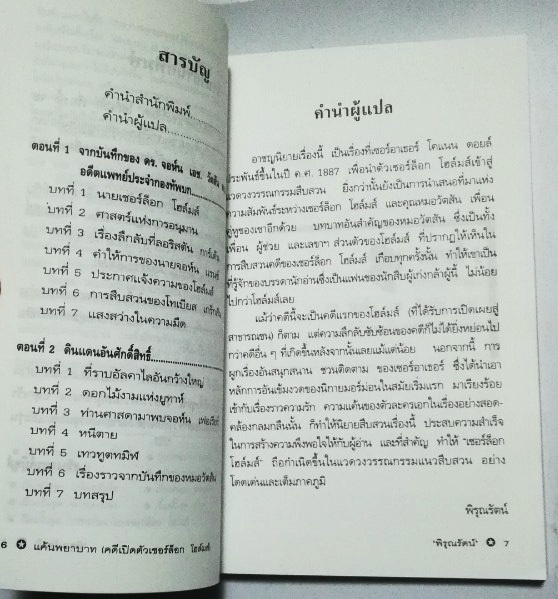 สารบัญ
คำนำสำนักพิมพ์
คำนำผู้แปล
ตอนที่ 1 จากบันทึกของ ดร. จอห์น เอช. วัตสัน
อดีตแพทย์ประจำกองทัพบก
บทที่ 1 นายเชอร์ล็อก โฮล์มส์
บทที่ 2 ศาสตร์แห่งการอนุมาน
บทที่ 3 เรื่องลึกลับที่ลอริสตัน การ์เด้น
บทที่ 4 คำให้การของนายจอห์น แรนซ์
บทที่ 5 ประกาศแจ้งความของโฮล์มส์
บทที่ 6 การสืบสวนของโทเบียส เกร็กสัน
บทที่ 7 แสงสว่างในความมืด
ตอนที่ 2 ดินแดนอันศักดิ์สิทธิ์
บทที่ 1 ที่ราบอัลคาไลอันกว้างใหญ่
บทที่ 2 ดอกไม้งามแห่งยูทาห์
บทที่ 3 ท่านศาสดามาพบจอห์น เฟอเรียร์
บทที่ 4 หนีตาย
บทที่ 5 เทวทูตทมิฬ
บทที่ 6 เรื่องราวจากบันทึกของหมอวัตสัน
บทที่ 7 บทสรุป
6 ✪ แค้นพยาบาท (คดีเปิดตัวเชอร์ล็อก โฮล์มส์)
คำนำผู้แปล
อาชญนิยายเรื่องนี้ เป็นเรื่องที่เซอร์อาเธอร์ โคแนน ดอยล์
ประพันธ์ขึ้นในปี ค.ศ. 1887 เพื่อนำตัวเชอร์ล็อก โฮล์มส์เข้าสู่
แวดวงวรรณกรรมสืบสวน ยิ่งกว่านั้นยังเป็นการนำเสนอที่มาแห่ง
ความสัมพันธ์ระหว่างเชอร์ล็อก โฮล์มส์ และคุณหมอวัตสัน เพื่อน
คู่หูของเขาอีกด้วย บทบาทอันสำคัญของหมอวัตสัน ซึ่งเป็นทั้ง
เพื่อน ผู้ช่วย และเลขาฯ ส่วนตัวของโฮล์มส์ ที่ปรากฏให้เห็นใน
การสืบสวนคดีของเชอร์ล็อก โฮล์มส์ เกือบทุกครั้งนั้น ทำให้เขาเป็น
ที่รู้จักของบรรดานักอ่านซึ่งเป็นแฟนของนักสืบผู้เก่งกล้าผู้นี้ ไม่น้อย
ไปกว่าโฮล์มส์เลย
แม้ว่าคดีนี้จะเป็นคดีแรกของโฮล์มส์ (ที่ได้รับการเปิดเผยสู่
สาธารณชน) ก็ตาม แต่ความลึกลับซับซ้อนของคดีก็ไม่ได้ยิ่งหย่อนไป
กว่าคดีอื่น ๆ ที่เกิดขึ้นหลังจากนั้นเลยแม้แต่น้อย นอกจากนี้ การ
ผูกเรื่องอันสนุกสนาน ชวนติดตาม ของเซอร์อาเธอร์ ซึ่งได้นำเอา
หลักการอันเข้มงวดของนิกายมอร์มอนในสมัยเริ่มแรก มาเรียงร้อย
เข้ากับเรื่องราวความรัก ความแค้นของตัวละครเอกในเรื่องอย่างสอด-
คล้องกลมกลืนนั้น ก็ทำให้นิยายสืบสวนเรื่องนี้ ประสบความสำเร็จ
ในการสร้างความพึงพอใจให้กับผู้อ่าน และที่สำคัญ ทำให้ "เชอร์ล็อก
โฮล์มส์" ถือกำเนิดขึ้นในแวดวงวรรณกรรมแนวสืบสวน อย่าง
โดดเด่นและเต็มภาคภูมิ
พิรุณรัตน์
"พิรุณรัตน์" ✪ 7